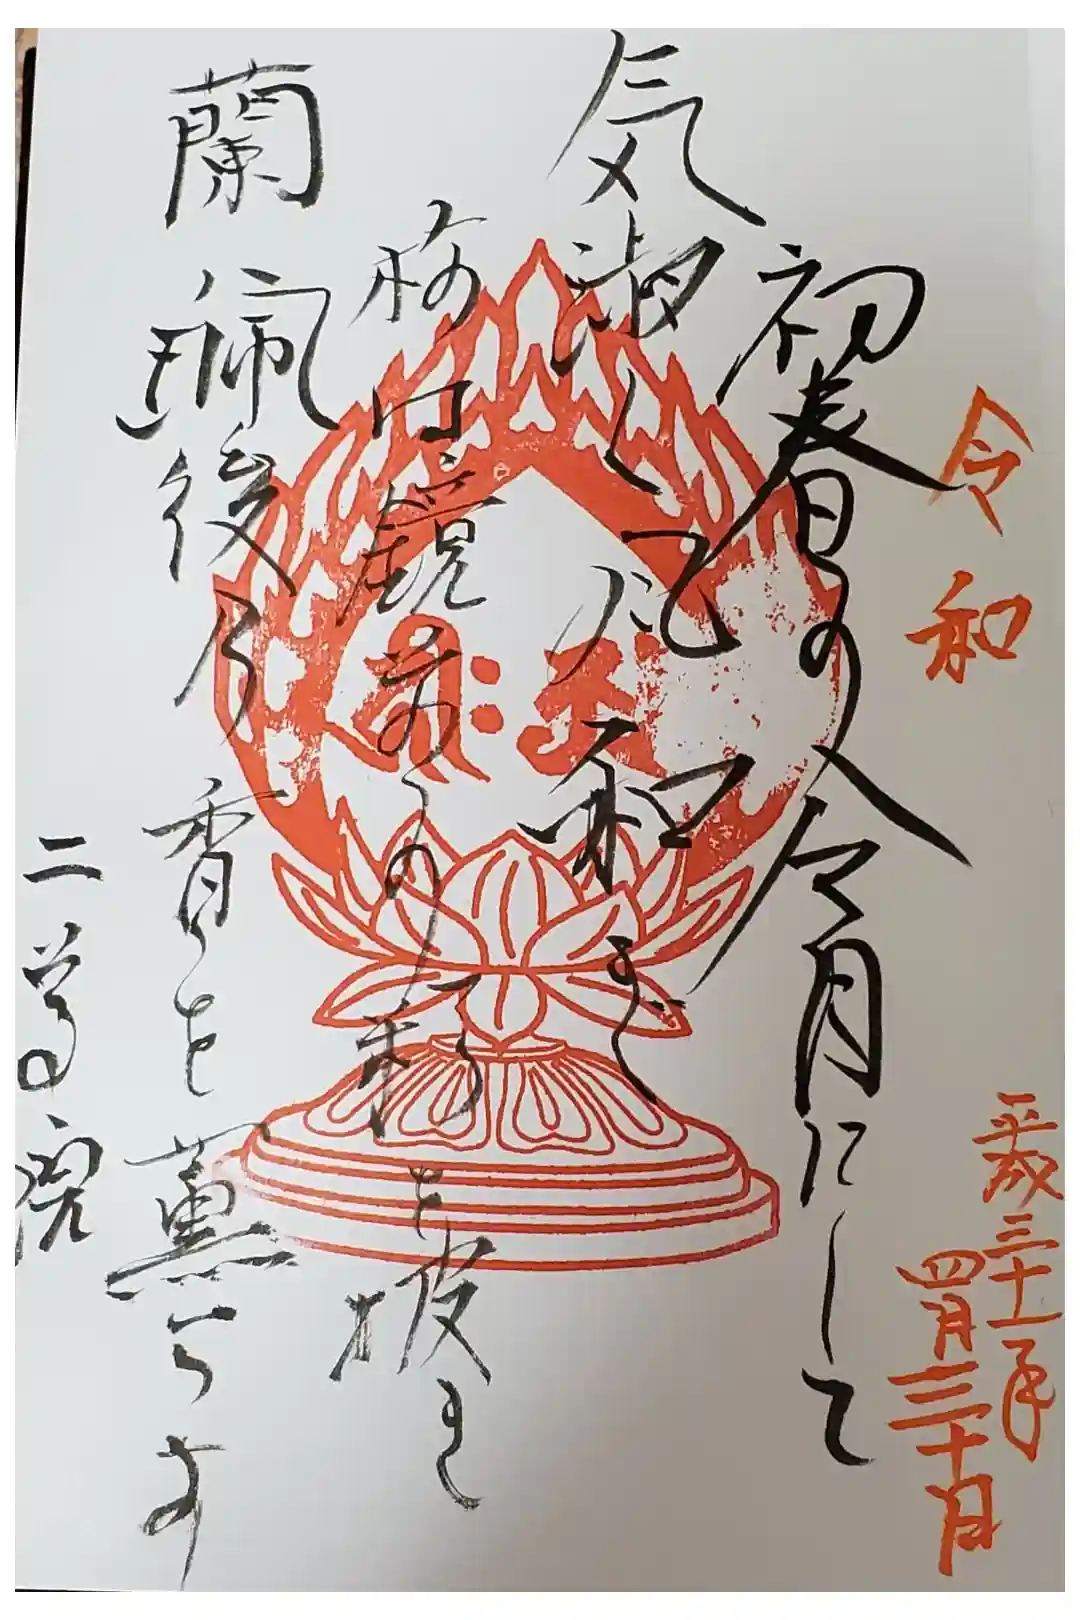 令和
平成三十一年
四月三十日
初春の令月にして
気淑く風和ぎ
梅は鏡前の粉を披き
蘭珮後乃香を薫らす
二尊院